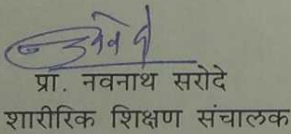 प्रा. नवनाथ सरोदे
शारीरिक शिक्षण संचालक